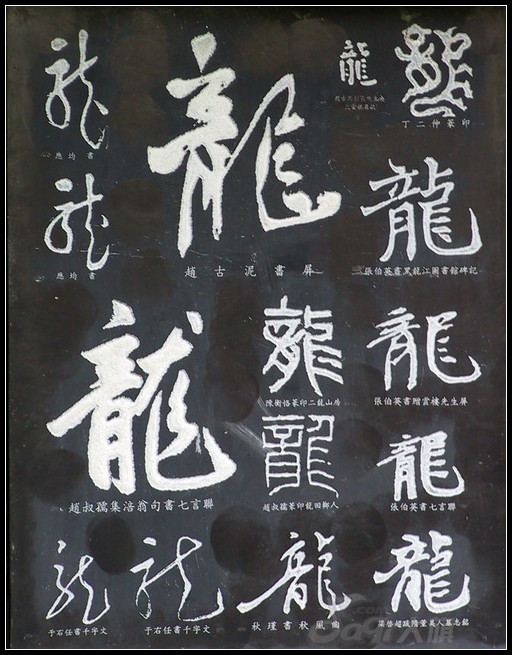 龍
應均書
龍
趙古泥書屏
龍
龍
丁二仲篆印
龍
應均書
龍
張伯英書黑龍江圖書館碑記
龍
趙叔孺集涪翁句書七言聯
龍
陳衡恪篆印二龍山房
龍
張伯英書贈雲樓先生屏
龍
趙叔孺篆印龍田鄉人
龍
張伯英書七言聯
龍
于右任書千字文
龍
于右任書千字文
龍
秋瑾書秋風曲
龍
梁啓超跋隋董美人墓志銘
.com
大旗